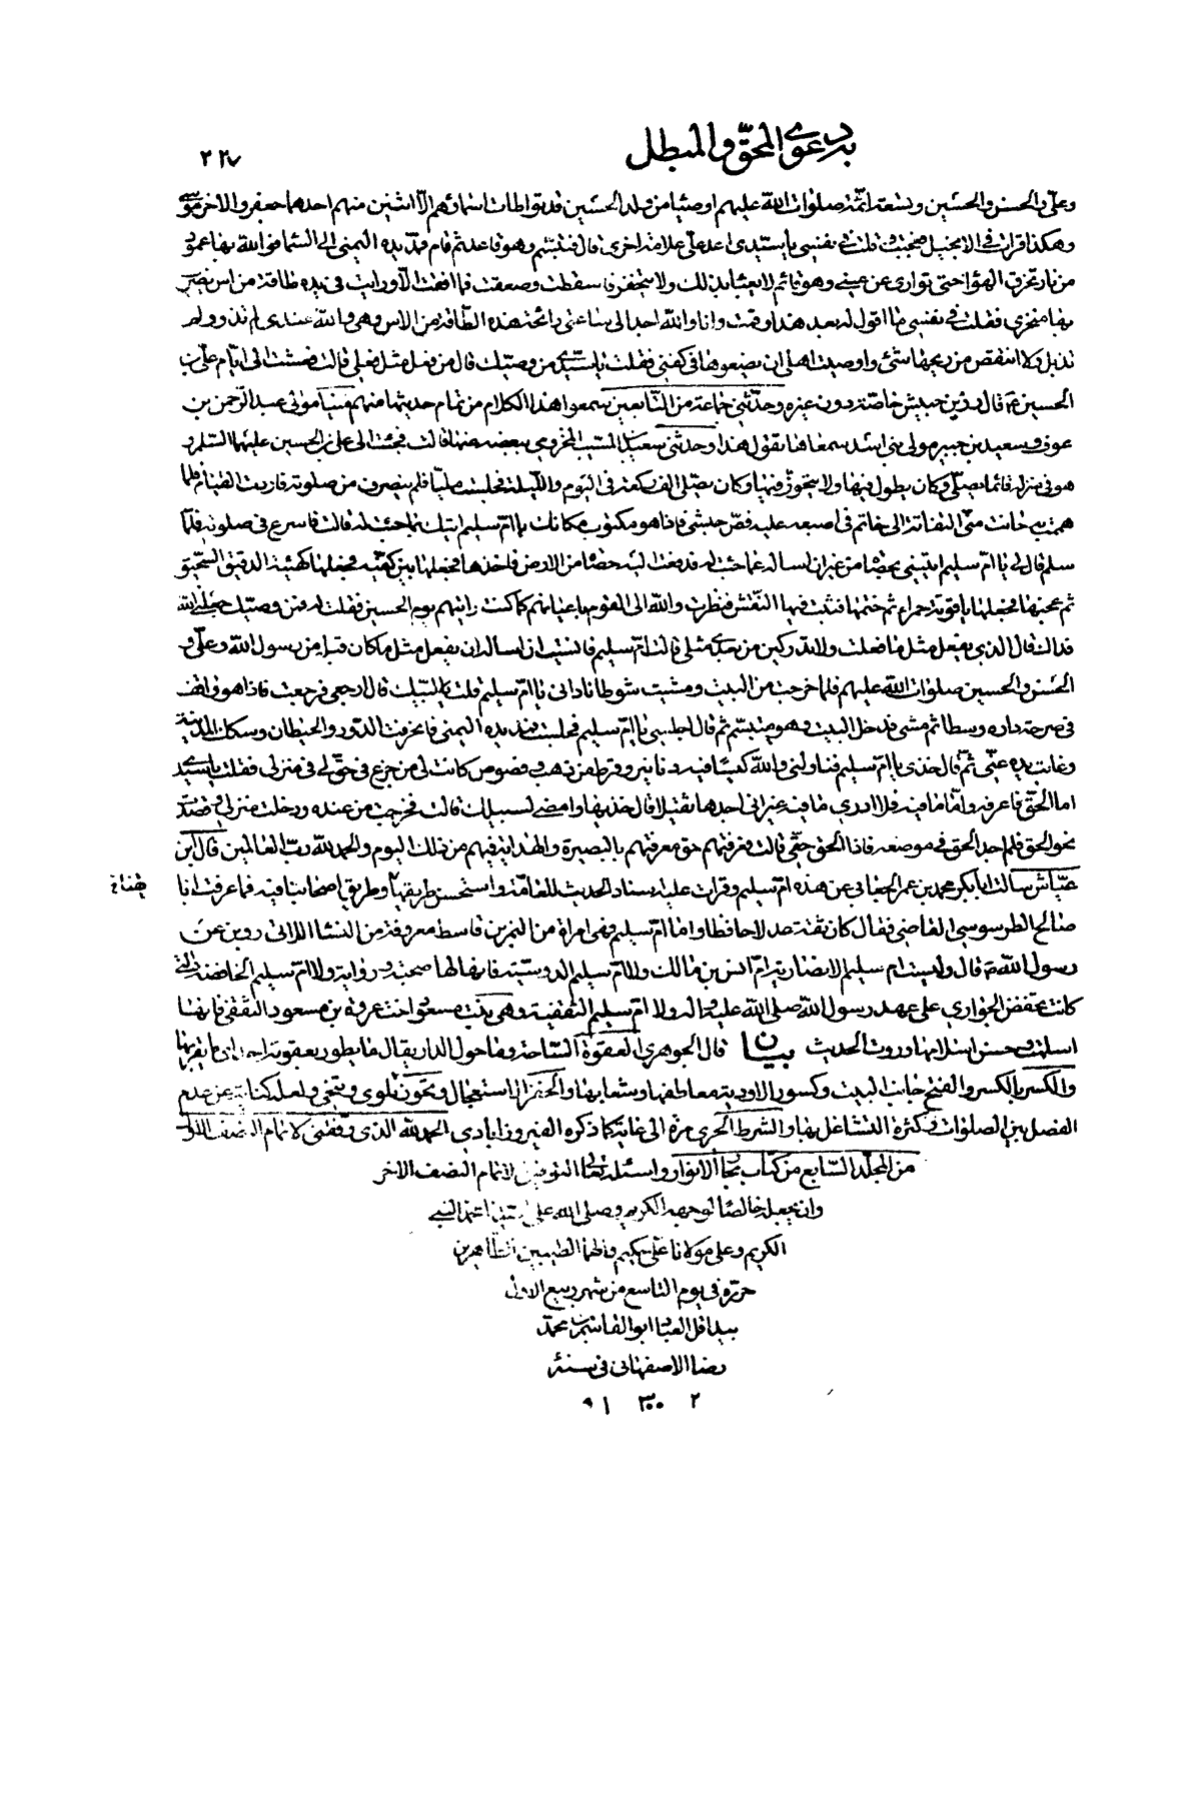 به دعوى المحق والمبطل
٢٢٧
وعلي والحسن والحسين وتسعة ائمة صلوات الله عليهم اوصياء من ولد الحسين قد تواطات اسماؤهم الا اثنين منهم احدهما جعفر والاخر موسى
وهكذا قرات في الانجيل فعجبت وقلت في نفسي يا سيدي اعد علي علامة اخرى قال فتبسم وهو قاعد ثم قام فمد يده اليمنى الى السماء فوالله لكانها عمود
من نار تخرق الهواء حتى توارى عن عيني وهو قائم لا يعبأ بذلك ولا يتحفز فاسقطت وصعقت فما افقت الا ورايت في يده طاقة من اس يضرب
بها منخري فقلت في نفسي ما اقول له بعد هذا وقمت وانا والله اجد الى ساعتي رائحة هذه الطاقة من الاس وهي والله عندي لم تذو ولم
تذبل ولا انتقص من ريحها شئ واوصيت اهلي ان يضعوها في كفني فقلت يا سيدي من وصيك قال من فعل مثل فعلي قالت فعشت الى ايام علي بن
الحسين ع قال زر بن حبيش خاصة دون غيره وحدثني جماعة من التابعين سمعوا هذا الكلام من تمام حديثها منهم مينا مولى عبد الرحمن بن
عوف وسعيد بن جبير مولى بني اسد سمعاها تقول هذا وحدثني سعيد بن المسيب المخزومي ببعضه عنها قالت فجئت الى علي بن الحسين عليهما السلم و
هو في منزله قائما يصلي وكان يطول فيها ولا يتحوز فيها وكان يصلي الف ركعة في اليوم والليلة فجلست مليا فلم ينصرف من صلوته فاردت القيام فلما
هممت به حانت مني التفاتة الى خاتم في اصبعه عليه فص حبشي فاذا هو مكتوب مكانك يا ام سليم انبئك بما جئت له قالت فاسرع في صلوته فلما
سلم قال لي يا ام سليم ايتيني بحصاة من غير ان اساله عما جئت له فدفعت اليه حصاة من الارض فاخذها فجعلها بين كفيه فجعلها كهيئة الدقيق السحيق
ثم عجنها فجعلها ياقوتة حمراء ثم ختمها فثبت فيها النقش فنظرت والله الى القوم باعيانهم كما كنت رايتهم يوم الحسين فقلت له فمن وصيك جعلني الله
فداك قال الذي يفعل مثل ما فعلت ولا تدركين من بعدي مثلي قالت ام سليم فانسيت ان اساله ان يفعل مثل ما كان قبله من رسول الله وعلي و
الحسن والحسين صلوات الله عليهم فلما خرجت من البيت ومشيت شوطا ناداني يا ام سليم قلت لبيك قال ارجعي فرجعت فاذا هو واقف
في صرحة داره وسطا ثم مشى فدخل البيت وهو يتبسم ثم قال اجلسي يا ام سليم فجلست فمد يده اليمنى فانخرقت الدور والحيطان وسكك المدينة
وغابت يده عني ثم قال خذي يا ام سليم فناولني والله كيسا فيه دنانير وقرط من ذهب وفصوص كانت لي من جزع في حق لي في منزلي فقلت يا سيدي
اما الحق فاعرفه واما ما فيه فلا ادري ما فيه غير اني اجدها ثقيلا قال خذيها وامضي لسبيلك قالت فخرجت من عنده ودخلت منزلي وقصدت
نحو الحق فلم اجد الحق في موضعه فاذا الحق حقي قالت فعرفتهم حق معرفتهم بالبصيرة والهداية فيهم من ذلك اليوم والحمد لله رب العالمين قال ابن
عياش سالت ابا بكر محمد بن عمر الجعابي عن هذه ام سليم وقرات عليه اسناد الحديث للعامة واستحسن طريقها وطريق اصحابنا فيه فما عرفت ابا
صالح الطرسوسي القاضي فقال كان ثقة عدلا حافظا واما ام سليم فهي امراة من النمر بن قاسط معروفة من النساء اللاتي روين عن
رسول الله ص قال وليست ام سليم الانصارية ام انس بن مالك ولا ام سليم الدوسية فانها لها صحبة ورواية ولا ام سليم الخافضة التي
كانت تخفض الجواري على عهد رسول الله صلى الله عليه واله ولا ام سليم الثقفية وهي بنت مسعود اخت عروة بن مسعود الثقفي فانها
اسلمت وحسن اسلامها وروت الحديث بيان قال الجوهري العقوة الساحة وما حول الدار يقال ما يطور بعقوته احد اي ما يقربها
والكسر بالكسر والفتح جانب البيت وكسور الاودية معاطفها وشعابها والحفز الاستعجال وتحوز تلوى وتنحى ولعله كناية عن عدم
الفصل بين الصلوات وكثرة التشاغل بها والشوط الجري مرة الى غاية كما ذكره الفيروزابادي الحمد لله الذي وفقني لاتمام النصف الاول
من المجلد السابع من كتاب بحار الانوار واسئله تعالى التوفيق لاتمام النصف الاخر
وان يجعله خالصا لوجهه الكريم وصلى الله على النبي
الكريم وعلى مولانا علي والهما الطيبين
حرره في يوم التاسع من شهر ربيع الاول
بيد اقل العباد ابو القاسم بن محمد
رضا الاصفهاني في سنة
٢ ١٣٠٠ ٩١